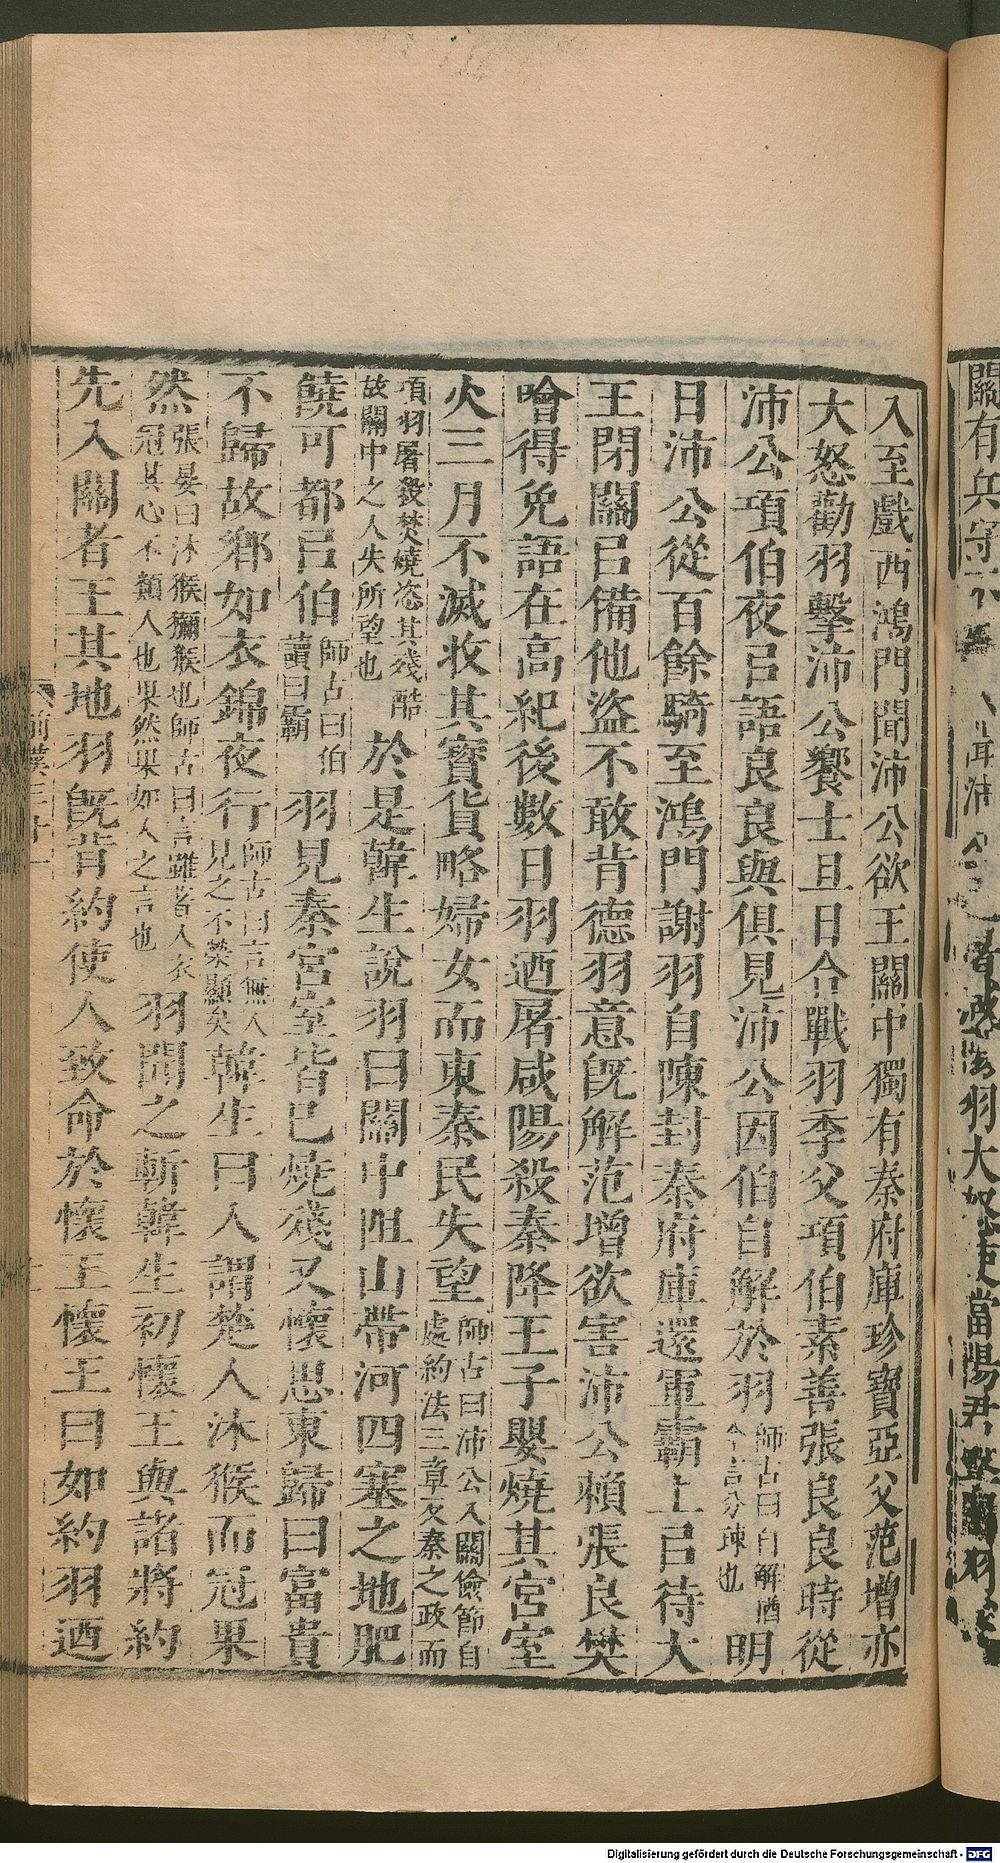 關有兵守不
羽大怒使當陽
入至戲西鴻門聞沛公欲王關中獨有秦府庫珍寶亞父范增亦
大怒勸羽擊沛公饗士旦日合戰羽季父項伯素善張良良時從
沛公項伯夜㠯語良良與俱見沛公因伯自解於羽師古曰自解猶今言分疎也明
日沛公從百餘騎至鴻門謝羽自陳封秦府庫還軍霸上㠯待大
王閉關㠯備他盜不敢背德羽意旣解范增欲害沛公賴張良樊
噲得免語在高紀後數日羽迺屠咸陽殺秦降王子嬰燒其宮室
火三月不滅收其寶貨略婦女而東秦民失望師古曰沛公入關儉節自處約法三章反秦之政而
項羽屠殺焚燒恣其殘酷故關中之人失所望也於是韓生說羽曰關中阻山帶河四塞之地肥
饒可都㠯伯師古曰伯讀曰霸羽見秦宮室皆已燒殘又懷思東歸曰富貴
不歸故鄉如衣錦夜行師古曰言無人見之不榮顯矣韓生曰人謂楚人沐猴而冠果
然張晏曰沐猴獼猴也師古曰言雖著人衣冠其心不類人也果然果如人之言也羽聞之斬韓生初懷王與諸將約
先入關者王其地羽旣背約使人致命於懷王懷王曰如約羽迺
Digitalisierung gefördert durch die Deutsche Forschungsgemeinschaft - DFG